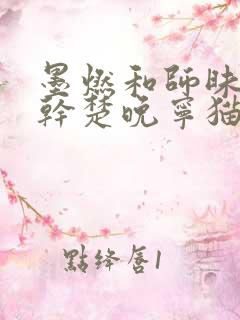 墨燃和師昧
幹楚晚寧猫
點绛唇1